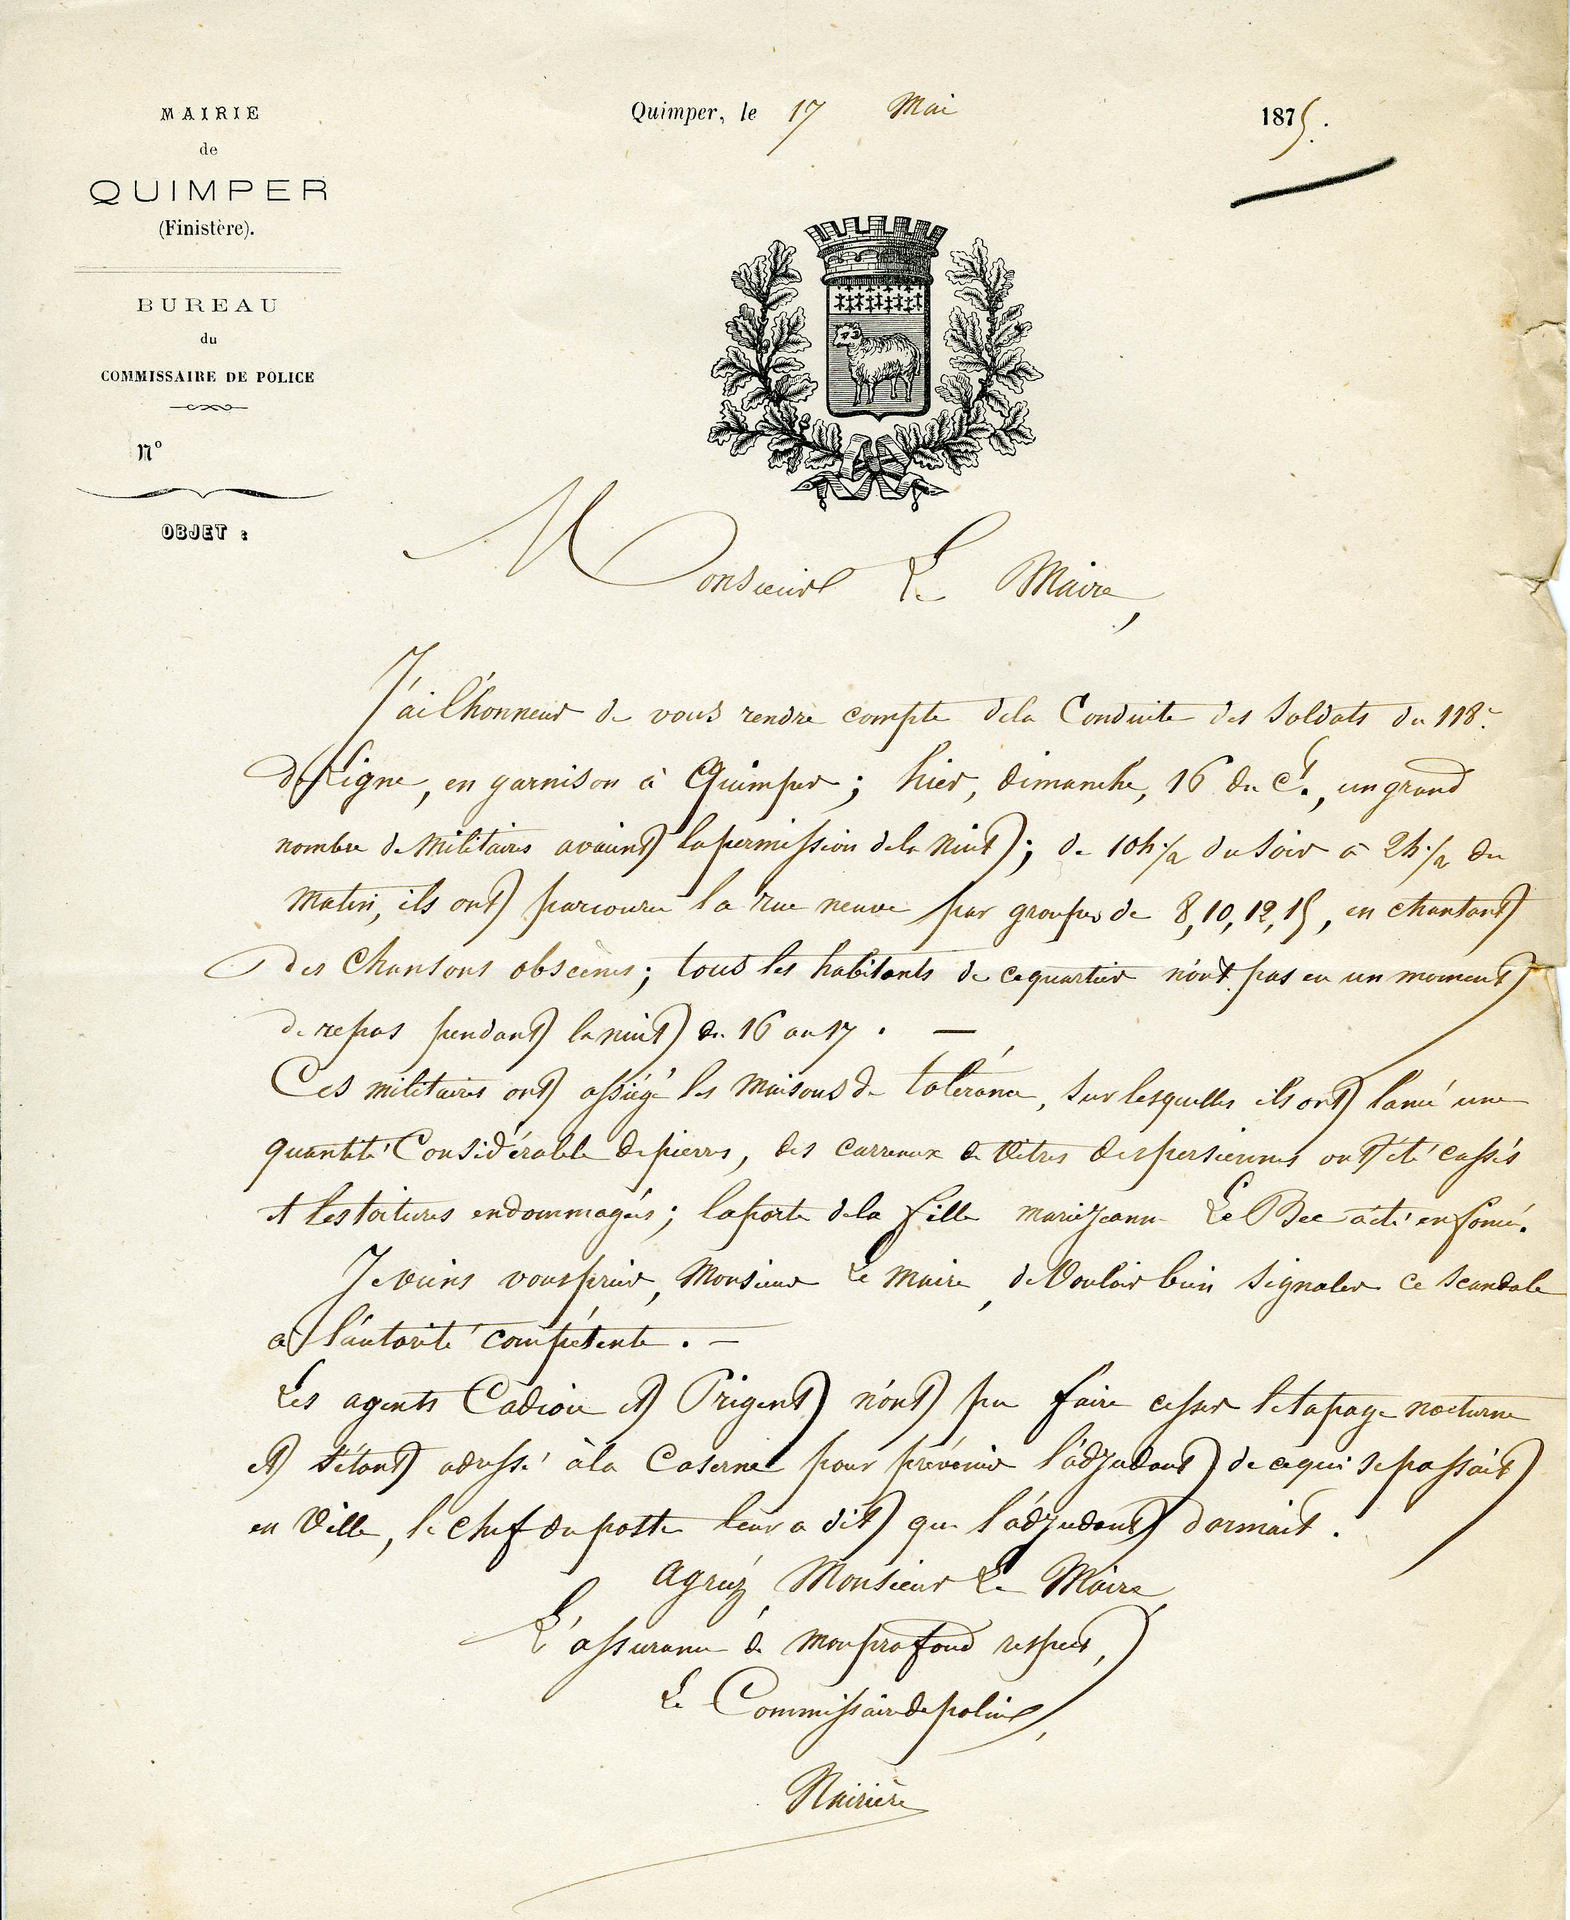 MAIRIE
de
QUIMPER
(Finistère).
BUREAU
du
COMMISSAIRE DE POLICE
N°
OBJET :
Quimper, le 17 Mai 1875.
Monsieur Le Maire,
J'ai l'honneur de vous rendre compte de la Conduite des Soldats du 118e
de Ligne, en garnison à Quimper ; hier, dimanche, 16 du Ct., un grand
nombre de Militaires avaient la permission de la Nuit ; de 10h 1/2 du Soir à 2h 1/2 du
Matin, ils ont parcouru la rue neuve par groupes de 8, 10, 12, 15, en chantant
des Chansons obscènes ; tous les habitants de ce quartier n'ont pas eu un moment
de repos pendant la nuit du 16 au 17. —
Ces militaires ont assiégé les Maisons de tolérance, sur lesquelles ils ont lancé une
quantité Considérable de pierres, des carreaux de Vitres des persiennes ont été cassés
et les toitures endommagées ; la porte de la fille marie Jeanne Le Bec a été enfoncé.
Je viens vous prier, Monsieur Le Maire, de Vouloir bien signaler ce scandale
à l'autorité compétente. —
Les agents Cadiou et Prigent n'ont pu faire cesser le tapage nocturne
et s'étant adressé à la Caserne pour prévenir l'adjudant de ce qui se passait
en Ville, le chef du poste leur a dit que l'adjudant dormait.
Agréez, Monsieur Le Maire,
L'assurance de mon profond respect,
Le Commissaire de police,